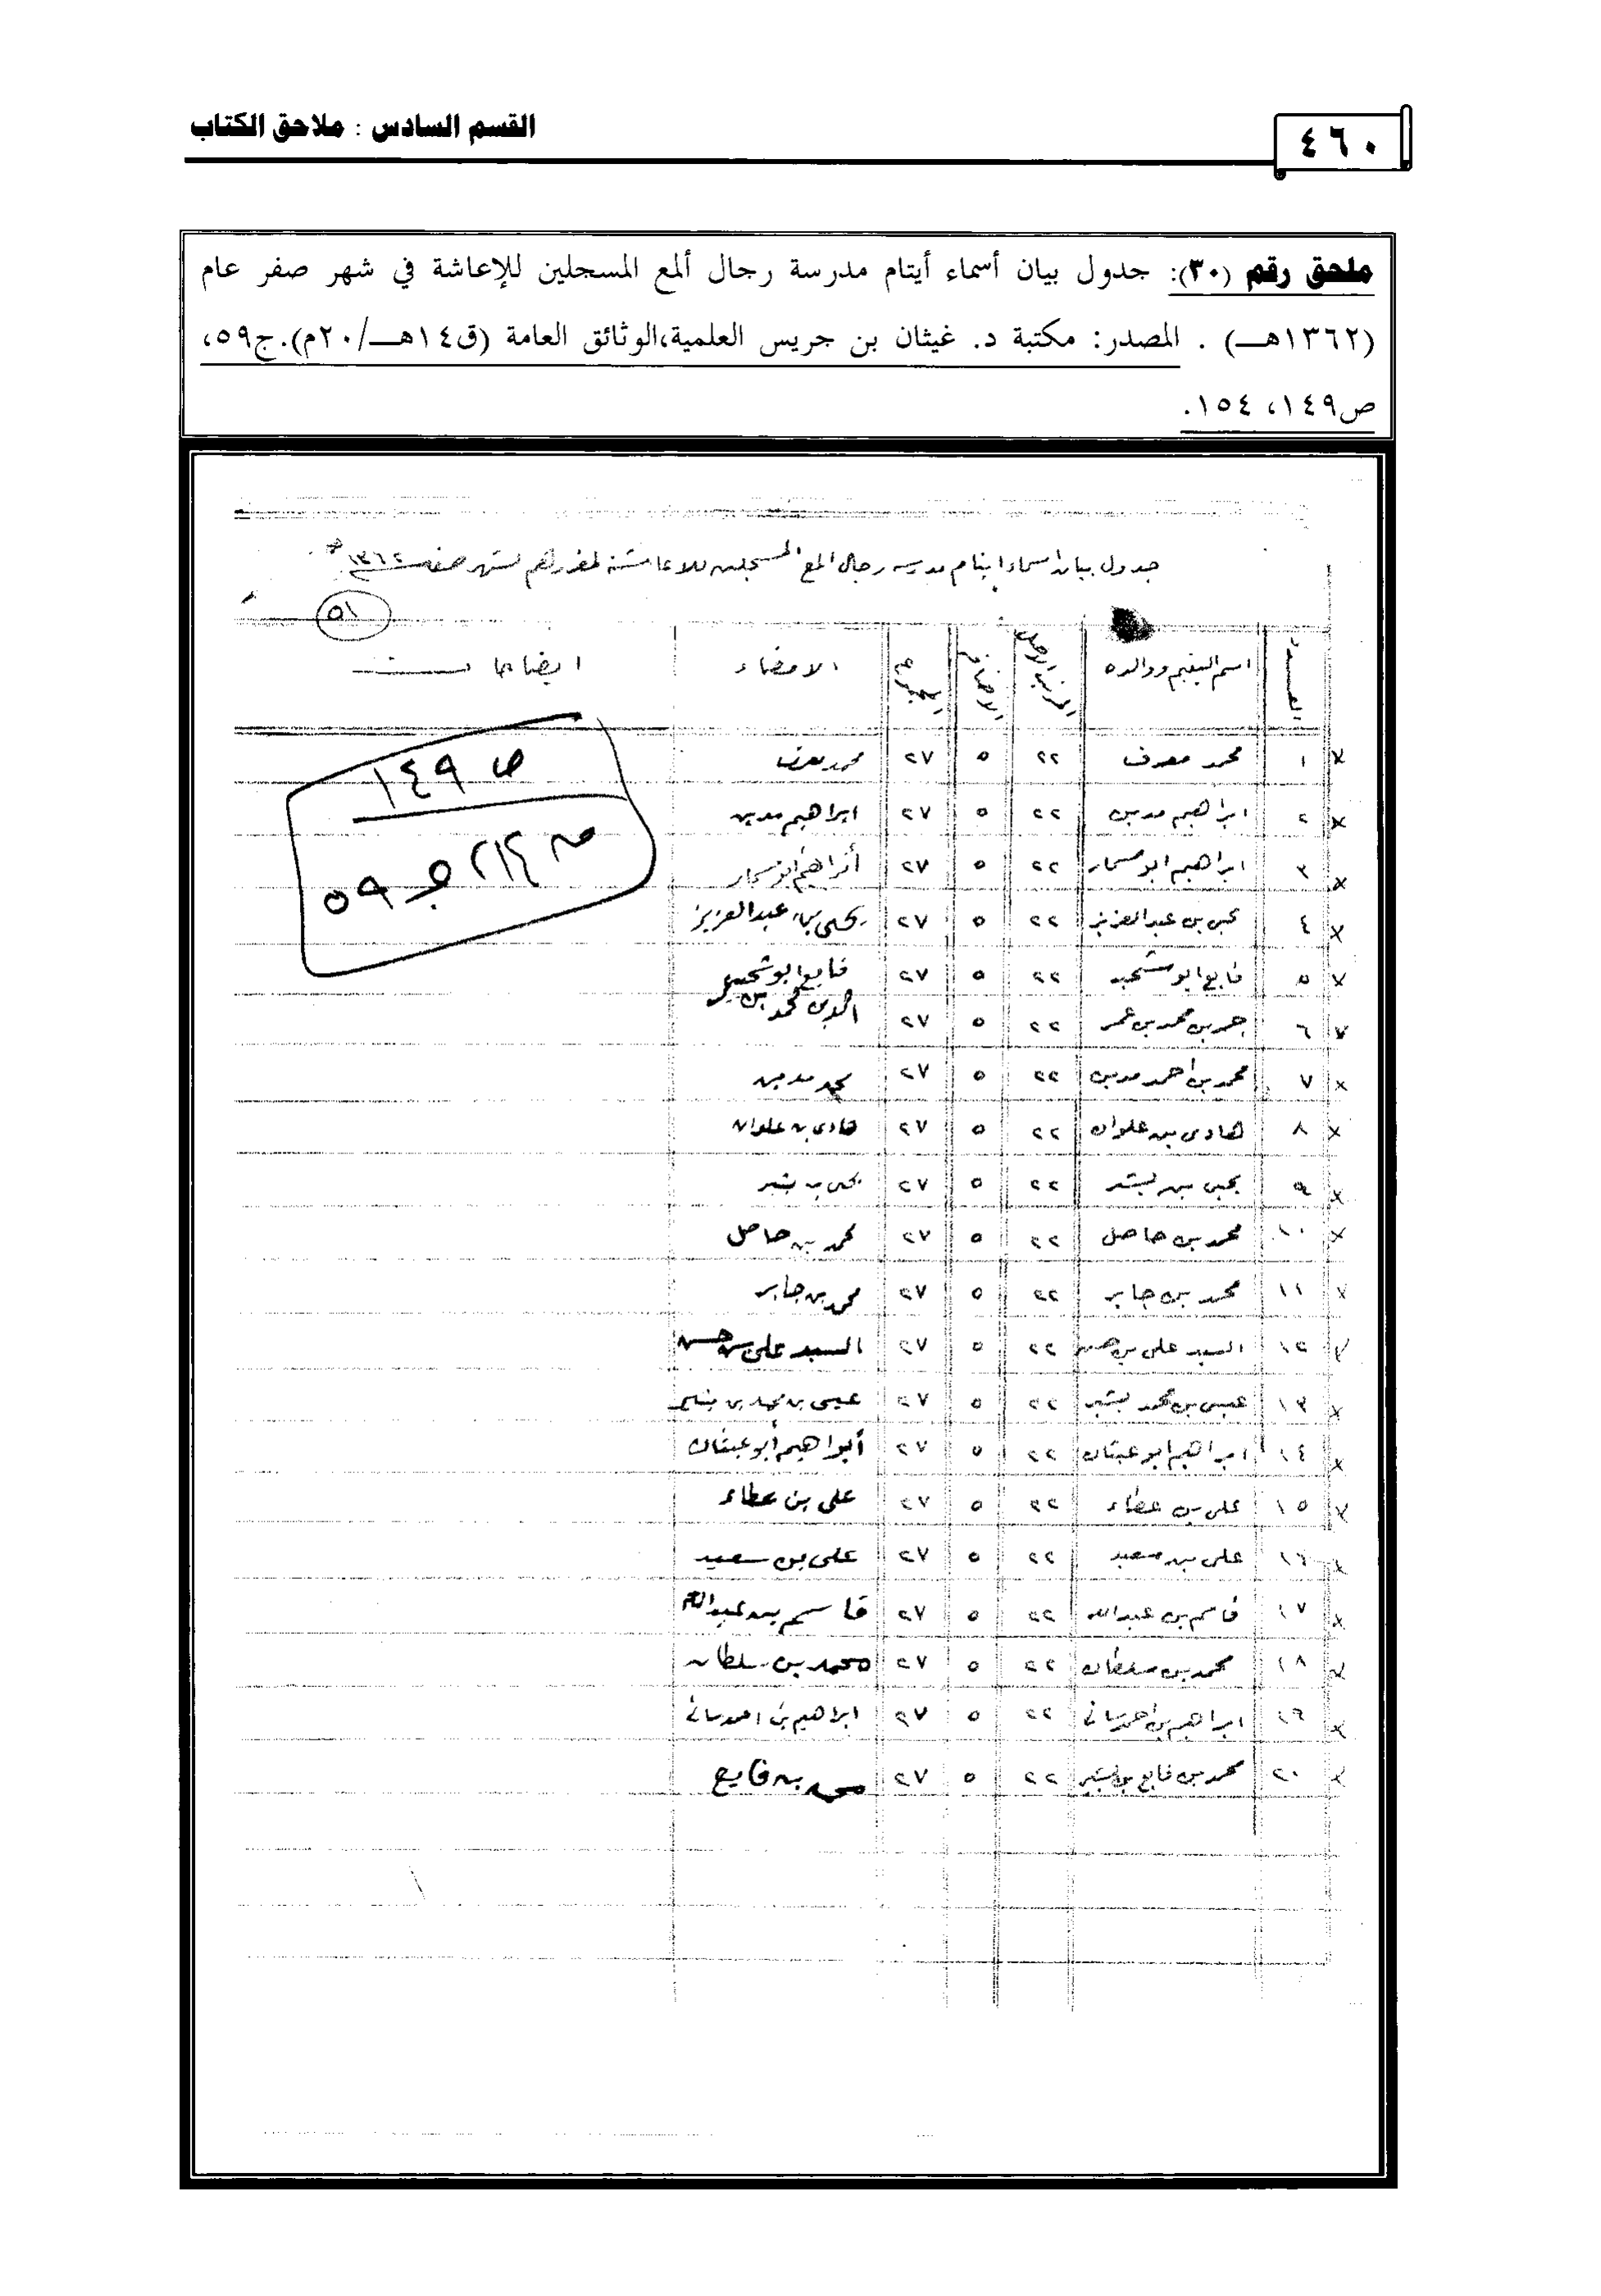 ٤٦٠
القسم السادس : ملاحق الكتاب
ملحق رقم (٣٠): جدول بيان أسماء أيتام مدرسة رجال ألمع المسجلين للإعاشة في شهر صفر عام
(١٣٦٢هـ) . المصدر: مكتبة د. غيثان بن جريس العلمية،الوثائق العامة (ق١٤هـ/٢٠م).ج٥٩،
ص١٤٩، ١٥٤.
جدول بيان اسماء ايتام مدرسه رجال المع المسجلين للاعاشة لشهر صفر ١٣٦٢
٥١
العدد اسم اليتيم ووالده المرتب الاصلي الاضافي المجموع الامضاء ايضاحات
ص ١٤٩
ج ٥٩
١ محمد معرف ٢٢ ٥ ٢٧
٢ ابراهيم مدين ٢٢ ٥ ٢٧ ابراهيم مدين
٣ ابراهيم ابو مسمار ٢٢ ٥ ٢٧ أبراهيم ابو مسمار
٤ يحيى بن عبدالعزيز ٢٢ ٥ ٢٧ يحيى بن عبدالعزيز
٥ فايع ابو ٢٢ ٥ ٢٧ فايع ابو
٦ بن محمد بن عمر ٢٢ ٥ ٢٧ محمد بن
٧ محمد بن احمد مدين ٢٢ ٥ ٢٧ محمد مدين
٨ هادى بن علوان ٢٢ ٥ ٢٧ هادى بن علوان
٩ يحيى بن بشير ٢٢ ٥ ٢٧ يحيى بن بشير
١٠ محمد بن حاصل ٢٢ ٥ ٢٧ محمد بن حاصل
١١ محمد بن جابر ٢٢ ٥ ٢٧ محمد بن جابر
١٢ السيد على بن حسن ٢٢ ٥ ٢٧ السيد على بن حسن
١٣ عيسى بن محمد بشير ٢٢ ٥ ٢٧ عيسى بن محمد بن بشير
١٤ ابراهيم ابو عيفان ٢٢ ٥ ٢٧ أبراهيم أبو عيفان
١٥ على بن عطاء ٢٢ ٥ ٢٧ على بن عطاء
١٦ على بن سعيد ٢٢ ٥ ٢٧ على بن سعيد
١٧ قاسم بن عبدالله ٢٢ ٥ ٢٧ قاسم بن عبدالله
١٨ محمد بن سلطان ٢٢ ٥ ٢٧ محمد بن سلطان
١٩ ابراهيم بن احمد ٢٢ ٥ ٢٧ ابراهيم بن احمد
٢٠ محمد بن فايع بن بشير ٢٢ ٥ ٢٧ محمد بن فايع